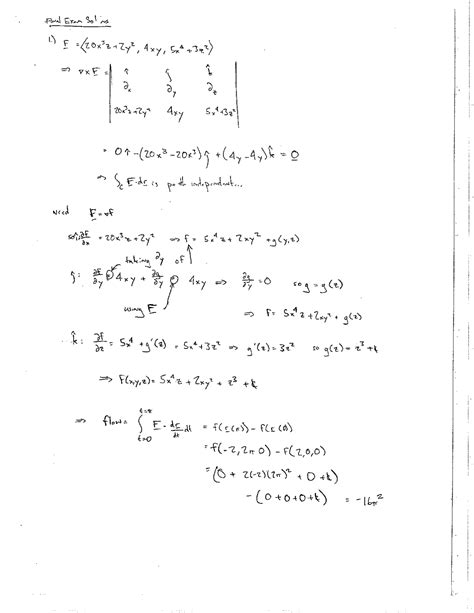 Final Exam Sol'ns
1) F = ⟨20x³z+2y², 4xy, 5x⁴+3z²⟩
⇒ ∇×F = | î ĵ k̂ |
∂x ∂y ∂z
20x³z+2y² 4xy 5x⁴+3z²
= 0î -(20x³-20x³)ĵ +(4y-4y)k̂ = 0
⇒ ∫c F·dr is path independent...
Need F = ∇f
so î: ∂f/∂x = 20x³z+2y² ⇒ f = 5x⁴z+2xy²+g(y,z)
taking ∂y of
ĵ: ∂f/∂y = 4xy + ∂g/∂y = 4xy ⇒ ∂g/∂y = 0 so g = g(z)
using F
⇒ f = 5x⁴z+2xy²+g(z)
k̂: ∂f/∂z = 5x⁴+g'(z) = 5x⁴+3z² ⇒ g'(z) = 3z² so g(z) = z³+k
⇒ f(x,y,z) = 5x⁴z+2xy²+z³+k
⇒ flow = ∫ t=0 t=π F·dr/dt dt = f(r(π)) - f(r(0))
= f(-2,2π,0) - f(2,0,0)
= (0 + 2(-2)(2π)² + 0 + k)
- (0+0+0+k) = -16π²